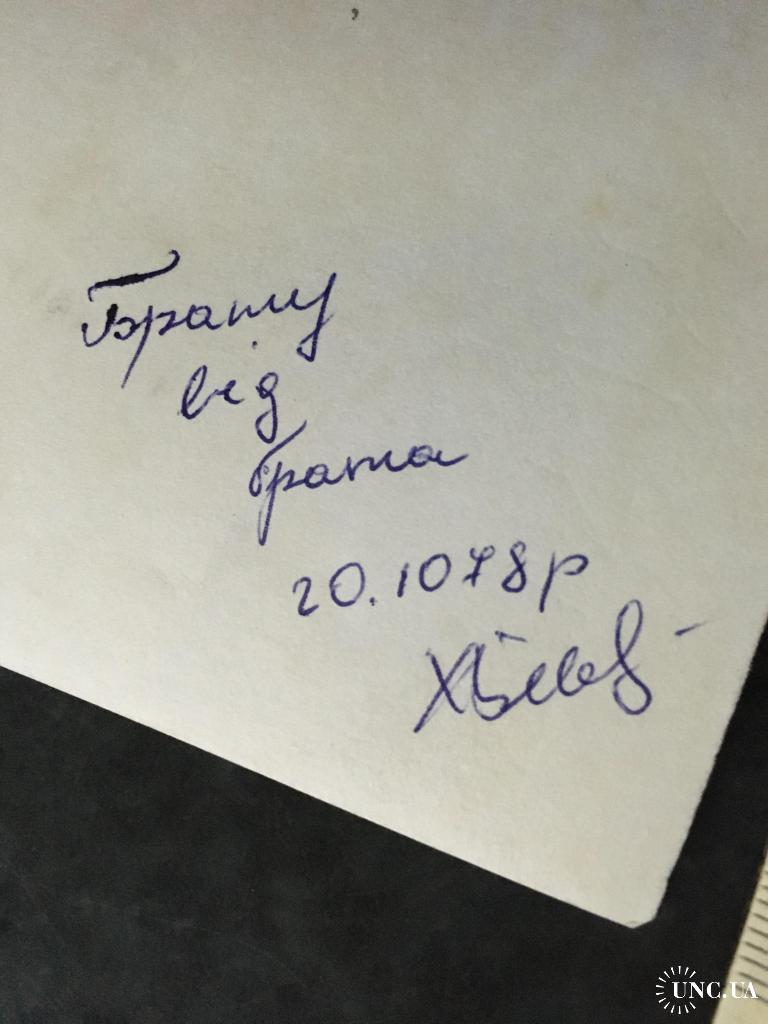 Брату
від
брата
20.1078р
UNC.UA